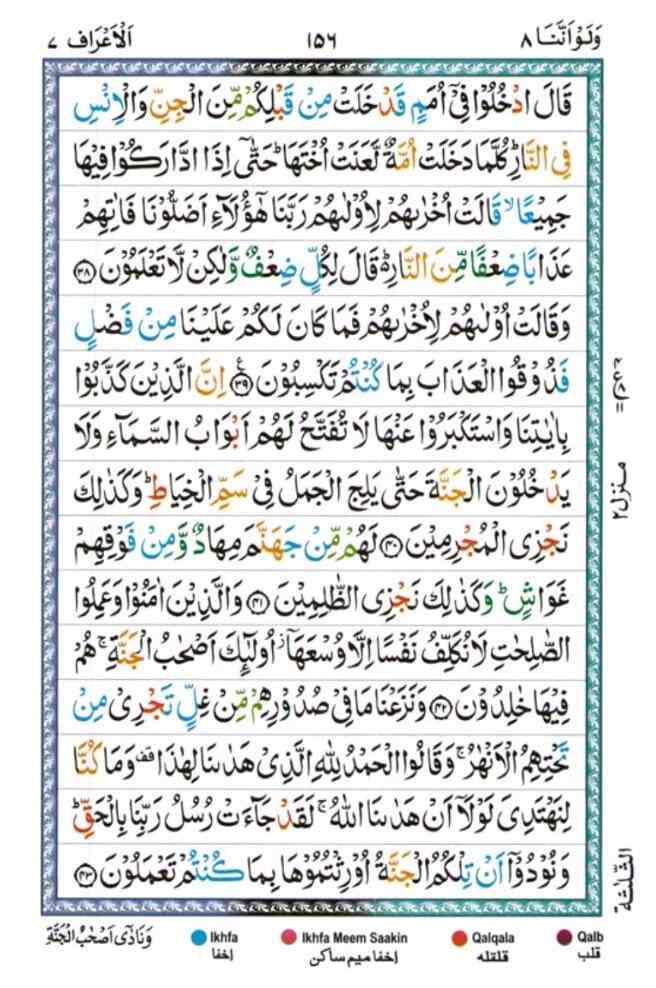 وَلَوْ اَنَّنَا ٨
١٥٦
اَلْاَعْرَاف ٧
قَالَ ادْخُلُوْا فِیْۤ اُمَمٍ قَدْ خَلَتْ مِنْ قَبْلِكُمْ مِّنَ الْجِنِّ وَالْاِنْسِ
فِی النَّارِ ؕ كُلَّمَا دَخَلَتْ اُمَّةٌ لَّعَنَتْ اُخْتَهَا ؕ حَتّٰۤی اِذَا ادَّارَكُوْا فِیْهَا
جَمِیْعًا ۙ قَالَتْ اُخْرٰىهُمْ لِاُوْلٰىهُمْ رَبَّنَا هٰۤؤُلَآءِ اَضَلُّوْنَا فَاٰتِهِمْ
عَذَابًا ضِعْفًا مِّنَ النَّارِ ؕ قَالَ لِكُلٍّ ضِعْفٌ وَّلٰكِنْ لَّا تَعْلَمُوْنَ ﴿٣٨﴾
وَقَالَتْ اُوْلٰىهُمْ لِاُخْرٰىهُمْ فَمَا كَانَ لَكُمْ عَلَیْنَا مِنْ فَضْلٍ
فَذُوْقُوا الْعَذَابَ بِمَا كُنْتُمْ تَكْسِبُوْنَ ﴿٣٩﴾ ع اِنَّ الَّذِیْنَ كَذَّبُوْا
بِاٰیٰتِنَا وَاسْتَكْبَرُوْا عَنْهَا لَا تُفَتَّحُ لَهُمْ اَبْوَابُ السَّمَآءِ وَلَا
یَدْخُلُوْنَ الْجَنَّةَ حَتّٰی یَلِجَ الْجَمَلُ فِیْ سَمِّ الْخِیَاطِ ؕ وَكَذٰلِكَ
نَجْزِی الْمُجْرِمِیْنَ ﴿٤٠﴾ لَهُمْ مِّنْ جَهَنَّمَ مِهَادٌ وَّمِنْ فَوْقِهِمْ
غَوَاشٍ ؕ وَكَذٰلِكَ نَجْزِی الظّٰلِمِیْنَ ﴿٤١﴾ وَالَّذِیْنَ اٰمَنُوْا وَعَمِلُوا
الصّٰلِحٰتِ لَا نُكَلِّفُ نَفْسًا اِلَّا وُسْعَهَاۤ ؗ اُولٰٓىِٕكَ اَصْحٰبُ الْجَنَّةِ ۚ هُمْ
فِیْهَا خٰلِدُوْنَ ﴿٤٢﴾ وَنَزَعْنَا مَا فِیْ صُدُوْرِهِمْ مِّنْ غِلٍّ تَجْرِیْ مِنْ
تَحْتِهِمُ الْاَنْهٰرُ ۚ وَقَالُوا الْحَمْدُ لِلّٰهِ الَّذِیْ هَدٰىنَا لِهٰذَا ۫ وَمَا كُنَّا
لِنَهْتَدِیَ لَوْلَاۤ اَنْ هَدٰىنَا اللّٰهُ ۚ لَقَدْ جَآءَتْ رُسُلُ رَبِّنَا بِالْحَقِّ ؕ
وَنُوْدُوْۤا اَنْ تِلْكُمُ الْجَنَّةُ اُوْرِثْتُمُوْهَا بِمَا كُنْتُمْ تَعْمَلُوْنَ ﴿٤٣﴾
منزل ٢
الثلثة
وَنَادٰۤی اَصْحٰبُ الْجَنَّةِ
Ikhfa
إخفا
Ikhfa Meem Saakin
إخفا ميم ساكن
Qalqala
قلقله
Qalb
قلب